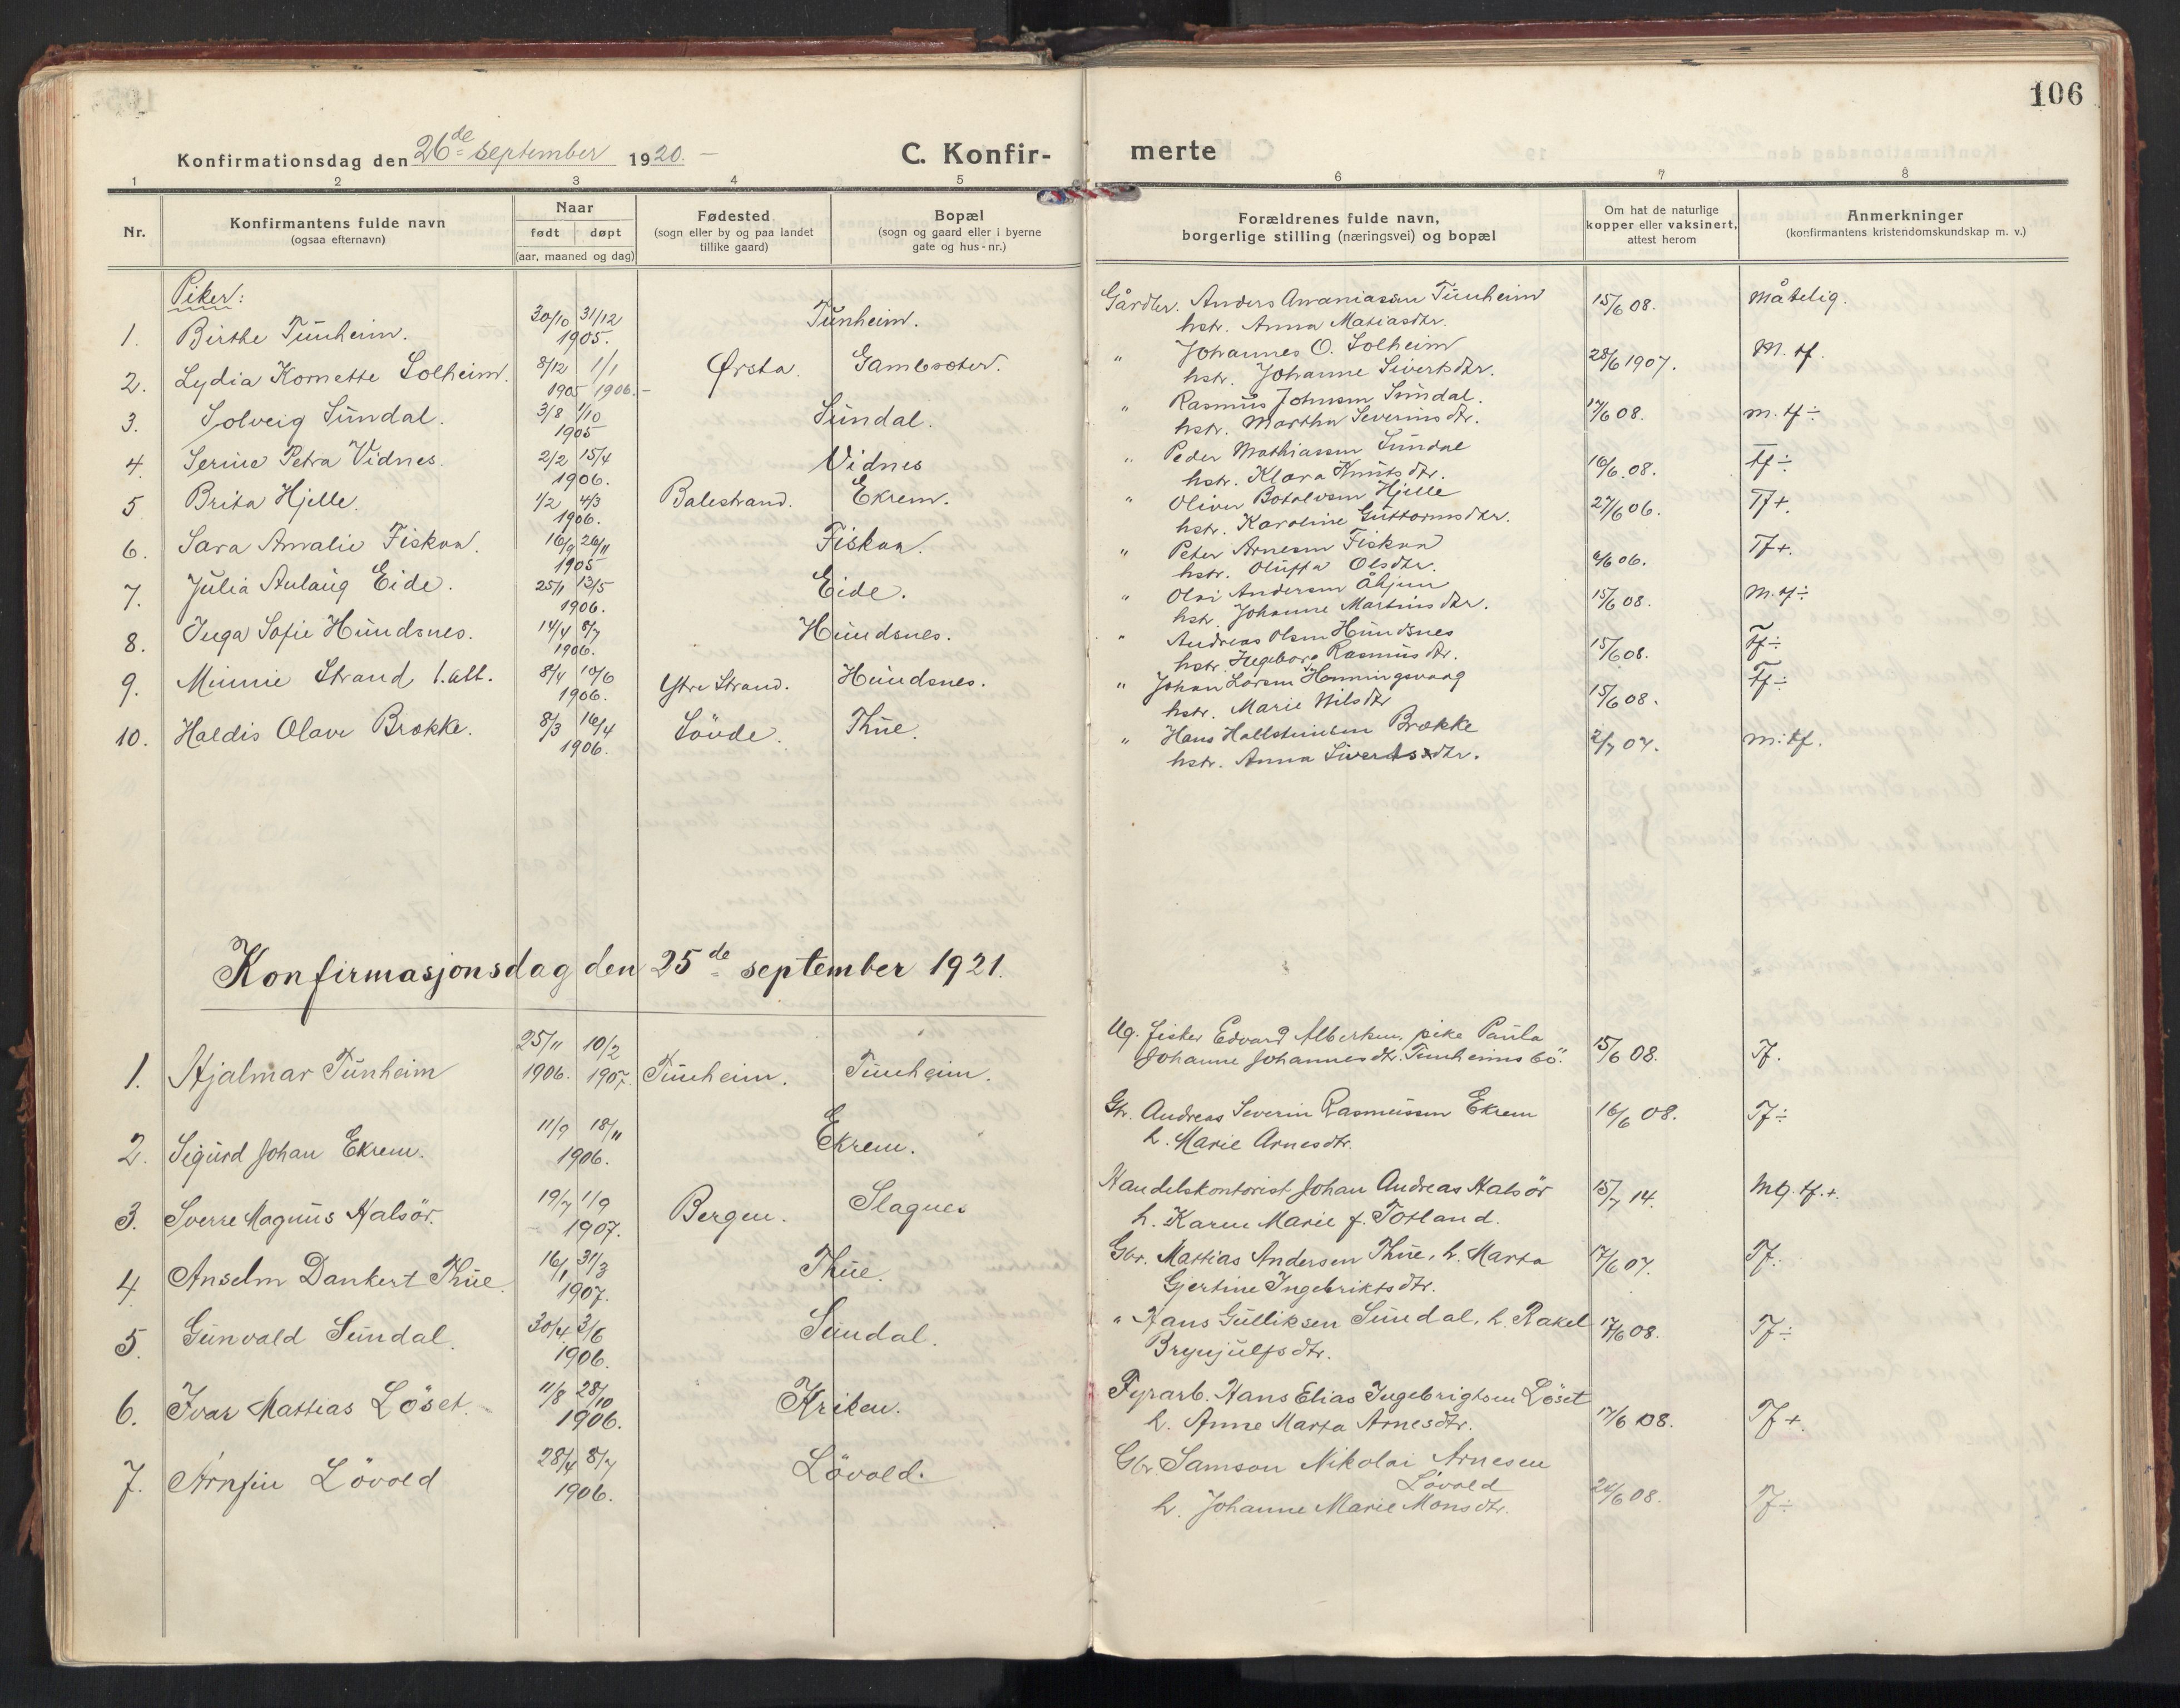 106
Konfirmationsdag den 26de september 1920. C. Konfir- merte
1 2 3 4 5 6 7 8
Nr.
Konfirmantens fulde navn
(ogsaa efternavn)
Naar
født døpt
(aar, maaned og dag)
Fødested
(sogn eller by og paa landet
tillike gaard)
Bopæl
(sogn og gaard eller i byerne
gate og hus-nr.)
Forældrenes fulde navn,
borgerlige stilling (næringsvei) og bopæl
Om hat de naturlige
kopper eller vaksinert,
attest herom
Anmerkninger
(konfirmantens kristendomskundskap m. v.)
Piker:
1. Birthe Tunheim. 30/10 31/12 1905. Tunheim. Gårdbr. Anders Ananiassen Tunheim 15/6 08. Måtelig.
hstr. Anna Matiasdtr.
2. Lydia Kornette Solheim. 8/12 1/1 1905 1906.- Ørsta. Gamlesæter. " Johannes O. Solheim 28/6 1907. M. tf.
hstr. Johanne Sivertsdtr.
3. Solveig Sundal. 3/8 1/10 1905 Sundal. " Rasmus Johnsen Sundal. 17/6 08. m. tf ÷
hstr. Martha Severinsdtr.
4. Serine Petra Vidnes. 2/2 15/4 1906. Vidnes " Peder Mathiassen Sundal 16/6 08. Tf ÷
hstr. Klara Knutsdtr.
5 Brita Hjelle. 1/2 4/3 1906. Balestrand. Ekrem. " Oliver Botolvsen Hjelle 27/6 06. Tf +.
hstr. Karoline Guttormsdtr.
6. Sara Amalie Fiskaa. 16/9 26/11 1905 Fiskaa. " Peter Arnesen Fiskaa 06. Tf +.
hstr. Oluffa Olsdtr.
7. Julia Aulaug Eide. 25/1 13/5 1906. Eide. " Olai Andersen Åhjem 15/6 08. m. tf ÷
hstr. Johanne Martinsdtr.
8. Inga Sofie Hundsnes. 14/4 8/7 1906. Hundsnes. " Andreas Olsen Hundsnes 15/6 08. Tf ÷
hstr. Ingeborg Rasmusdtr.
9. Minnie Strand 8/4 10/6 1906. Ytre Strand. Hundsnes. " Johan Larsen Henningsvaag 15/6 08. Tf ÷
hstr. Marie Nilsdtr
10. Haldis Olave Brække. 8/3 16/4 1906. Søvde. Thue. " Hans Hallsteinsen Brække 2/7 07. m. tf.
hstr. Anna Sivertsdtr.
Konfirmasjonsdag den 25de september 1921.
1. Hjalmar Tunheim 25/11 1906. 10/2 1907. Tunheim. Tunheim. Ug. fisker Edvard Albertsen, pike Paula
Johanne Johannesdtr. Tunheimsbö. 15/6 08. Tf.
2. Sigurd Johan Ekrem. 11/9 18/11 1906. Ekrem. Gbr. Andreas Severin Rasmussen Ekrem 16/6 08. Tf ÷
h. Marie Arnesdtr.
3. Sverre Magnus Halsör. 19/7 1/9 1907. Bergen. Slagnes Handelskontorist Johan Andreas Halsör 15/7 14. Mg. tf. +.
h. Karen Marie f. Totland.
4. Anselm Dankert Thue. 16/1 31/3 1907. Thue. Gbr. Mattias Andersen Thue, h. Marta 17/6 07. Tf.
Gjertine Ingebriktsdtr.
5. Gunvald Sundal. 30/4 3/6 1906. Sundal. " Hans Gulliksen Sundal, h. Rakel 17/6 08. Tf ÷
Brynjulfsdtr.
6. Ivar Mattias Löset. 11/8 28/10 1906. Kriken. Fyrarb. Hans Elias Ingebrigtsen Löset
h. Anne Marta Arnesdtr. 17/6 08. Tf +.
7. Arnfin Lövold 28/4 8/7 1906. Lövold. Gbr. Samson Nikolai Arnesen
Lövold
h. Johanne Marie Monsdtr. 08. Tf ÷